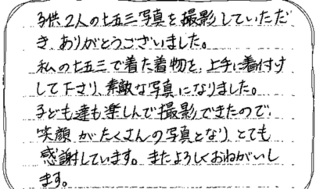 子供2人の七五三写真を撮影していただ
き、ありがとうございました。
私の七五三で着た着物を、上手に着付け
して下さり、素敵な写真になりました。
子ども達も楽しんで撮影できたので、
笑顔がたくさんの写真となり、とても
感謝しています。またよろしくおねがいし
ます。